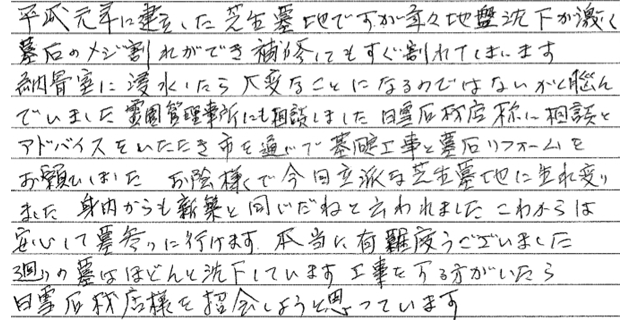 平成元年に建立した芝生墓地ですが年々地盤沈下が激く
墓石のメジ割れができ補修してもすぐ割れてしまいます
納骨室に浸水したら大変なことになるのではないかと悩ん
でいました 霊園管理事務所にも相談しました 白雪石材店様に相談と
アドバイスをいただき市を通いで基礎工事と墓石リフォームを
お願いしました お陰様で今回立派な芝生墓地に生れ変り
ました 身内からも新築と同じだねと云われました これからは
安心して墓参りに行けます 本当に有難度うございました
廻りの墓はほどんど沈下しています 工事をする方がいたら
白雪石材店様を招会しようと思っています